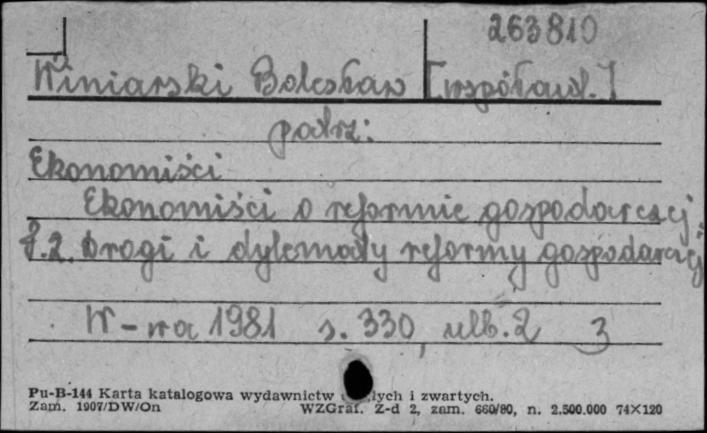 263810
Winiarski Bolesław [współaut.]
patrz:
Ekonomiści
Ekonomiści o reformie gospodarczej.
T.2. Drogi i dylematy reformy gospodarczej
W-wa 1981 s. 330, ulb. 2 3
Pu-B-144 Karta katalogowa wydawnictw i zwartych.
Zam. 1907/DW/On WZGraf. Z-d 2, zam. 660/80, n. 2.500.000 74×120